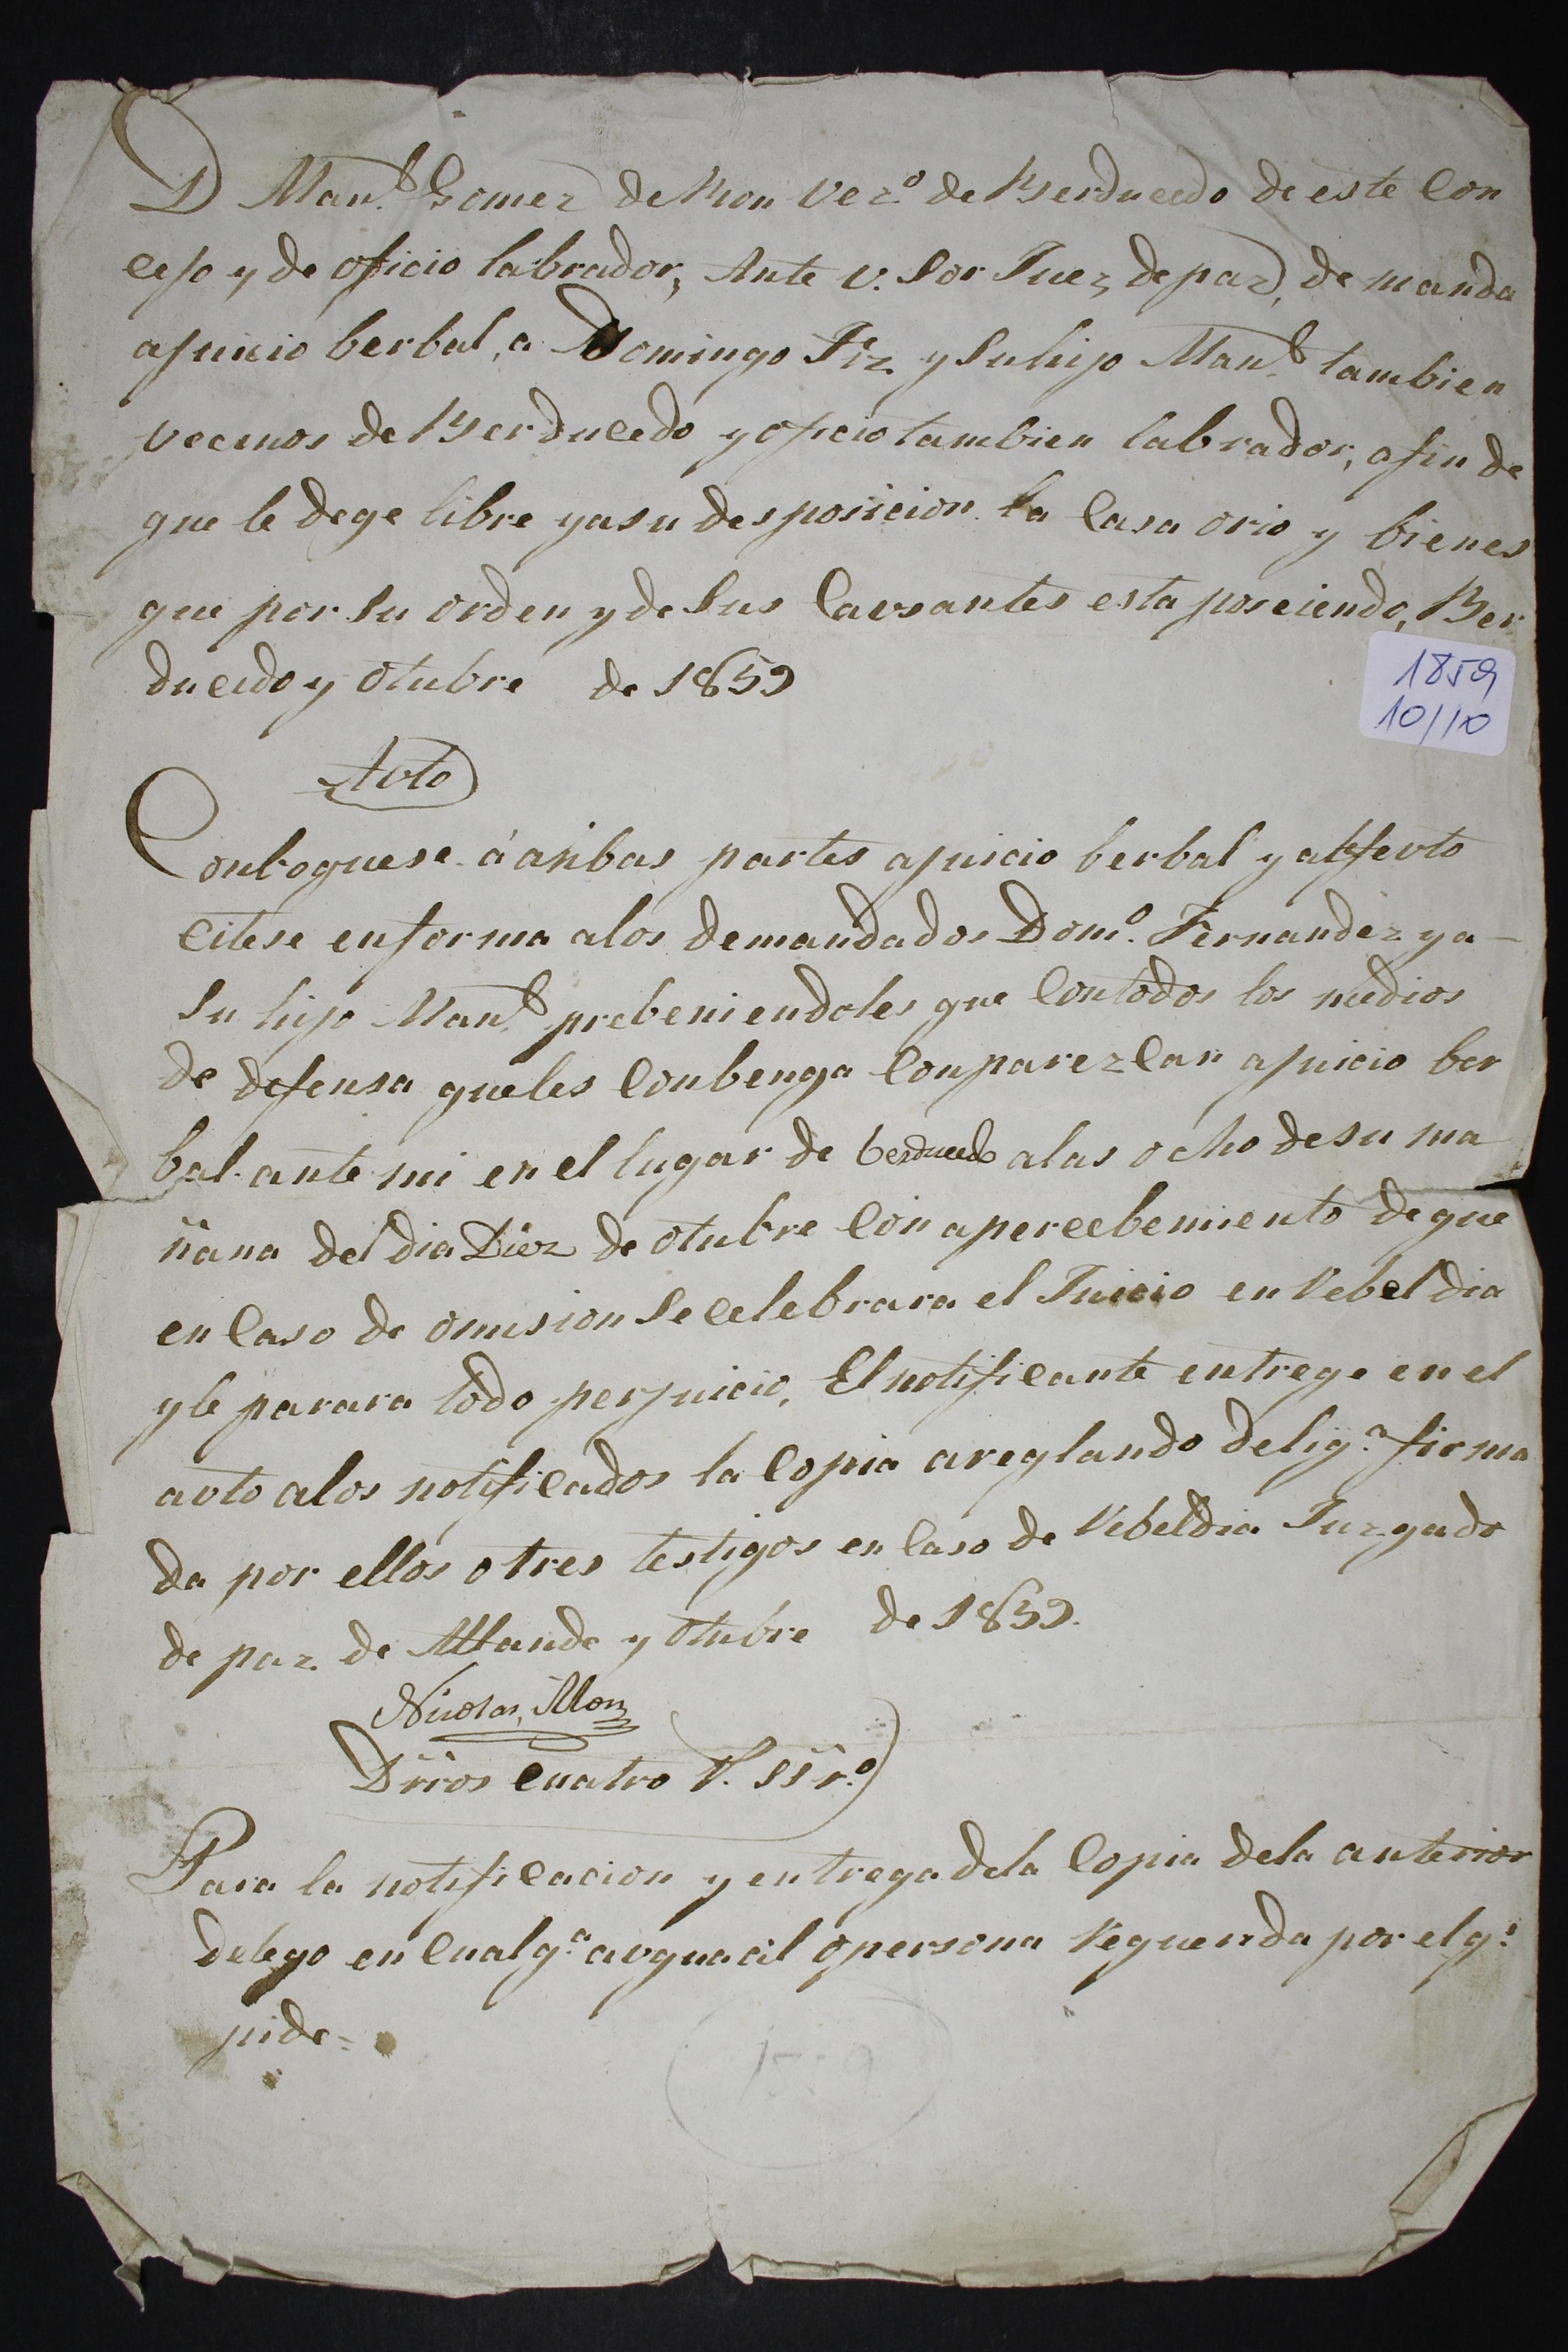 D Man.l Gomez de Mon vez.o de Berducedo de este Con
cejo y de oficio labrador, Ante v. Sor Juez de paz, de manda
ajuicio berbal, a Domingo Frz y Su hijo Man.l tambien
vecinos de Berducedo y oficio tambien labrador, afin de
que le dege libre yasu desposicion la Casa orio y bienes
que por Su orden y de Sus Cavsantes esta poseiendo, Ber
ducedo y Otubre de 1859
1859
10/10
Avto
Conboquese á anbas partes ajuicio berbal y al efevto
citese enforma alos demandados Dom.o Fernandez ya
Su hijo Man.l prebeniendoles que Contodos los medios
de defensa queles Conbenga Conparezcan ajuicio ber
bal ante mi en el lugar de berducedo alas ocho desu ma
ñana del dia Diez de otubre Con apercebemiento deque
en Caso de omision Se celebrara el Juicio en Rebeldia
yle parara todo perjuicio, El notificante entrege en el
avto alos notificados la Copia areglando delig.a firma
da por ellos o tres testigos en Caso de Rebeldia Juzgado
de paz de Allande y Otubre de 1859.
Nicolas Mon
Dríos Cuatro R. ss r.o
Para la notificacion y entrega dela Copia dela anterior
delego en Cualq.a avguacil opersona Requerida por elq.e
pide=
1859